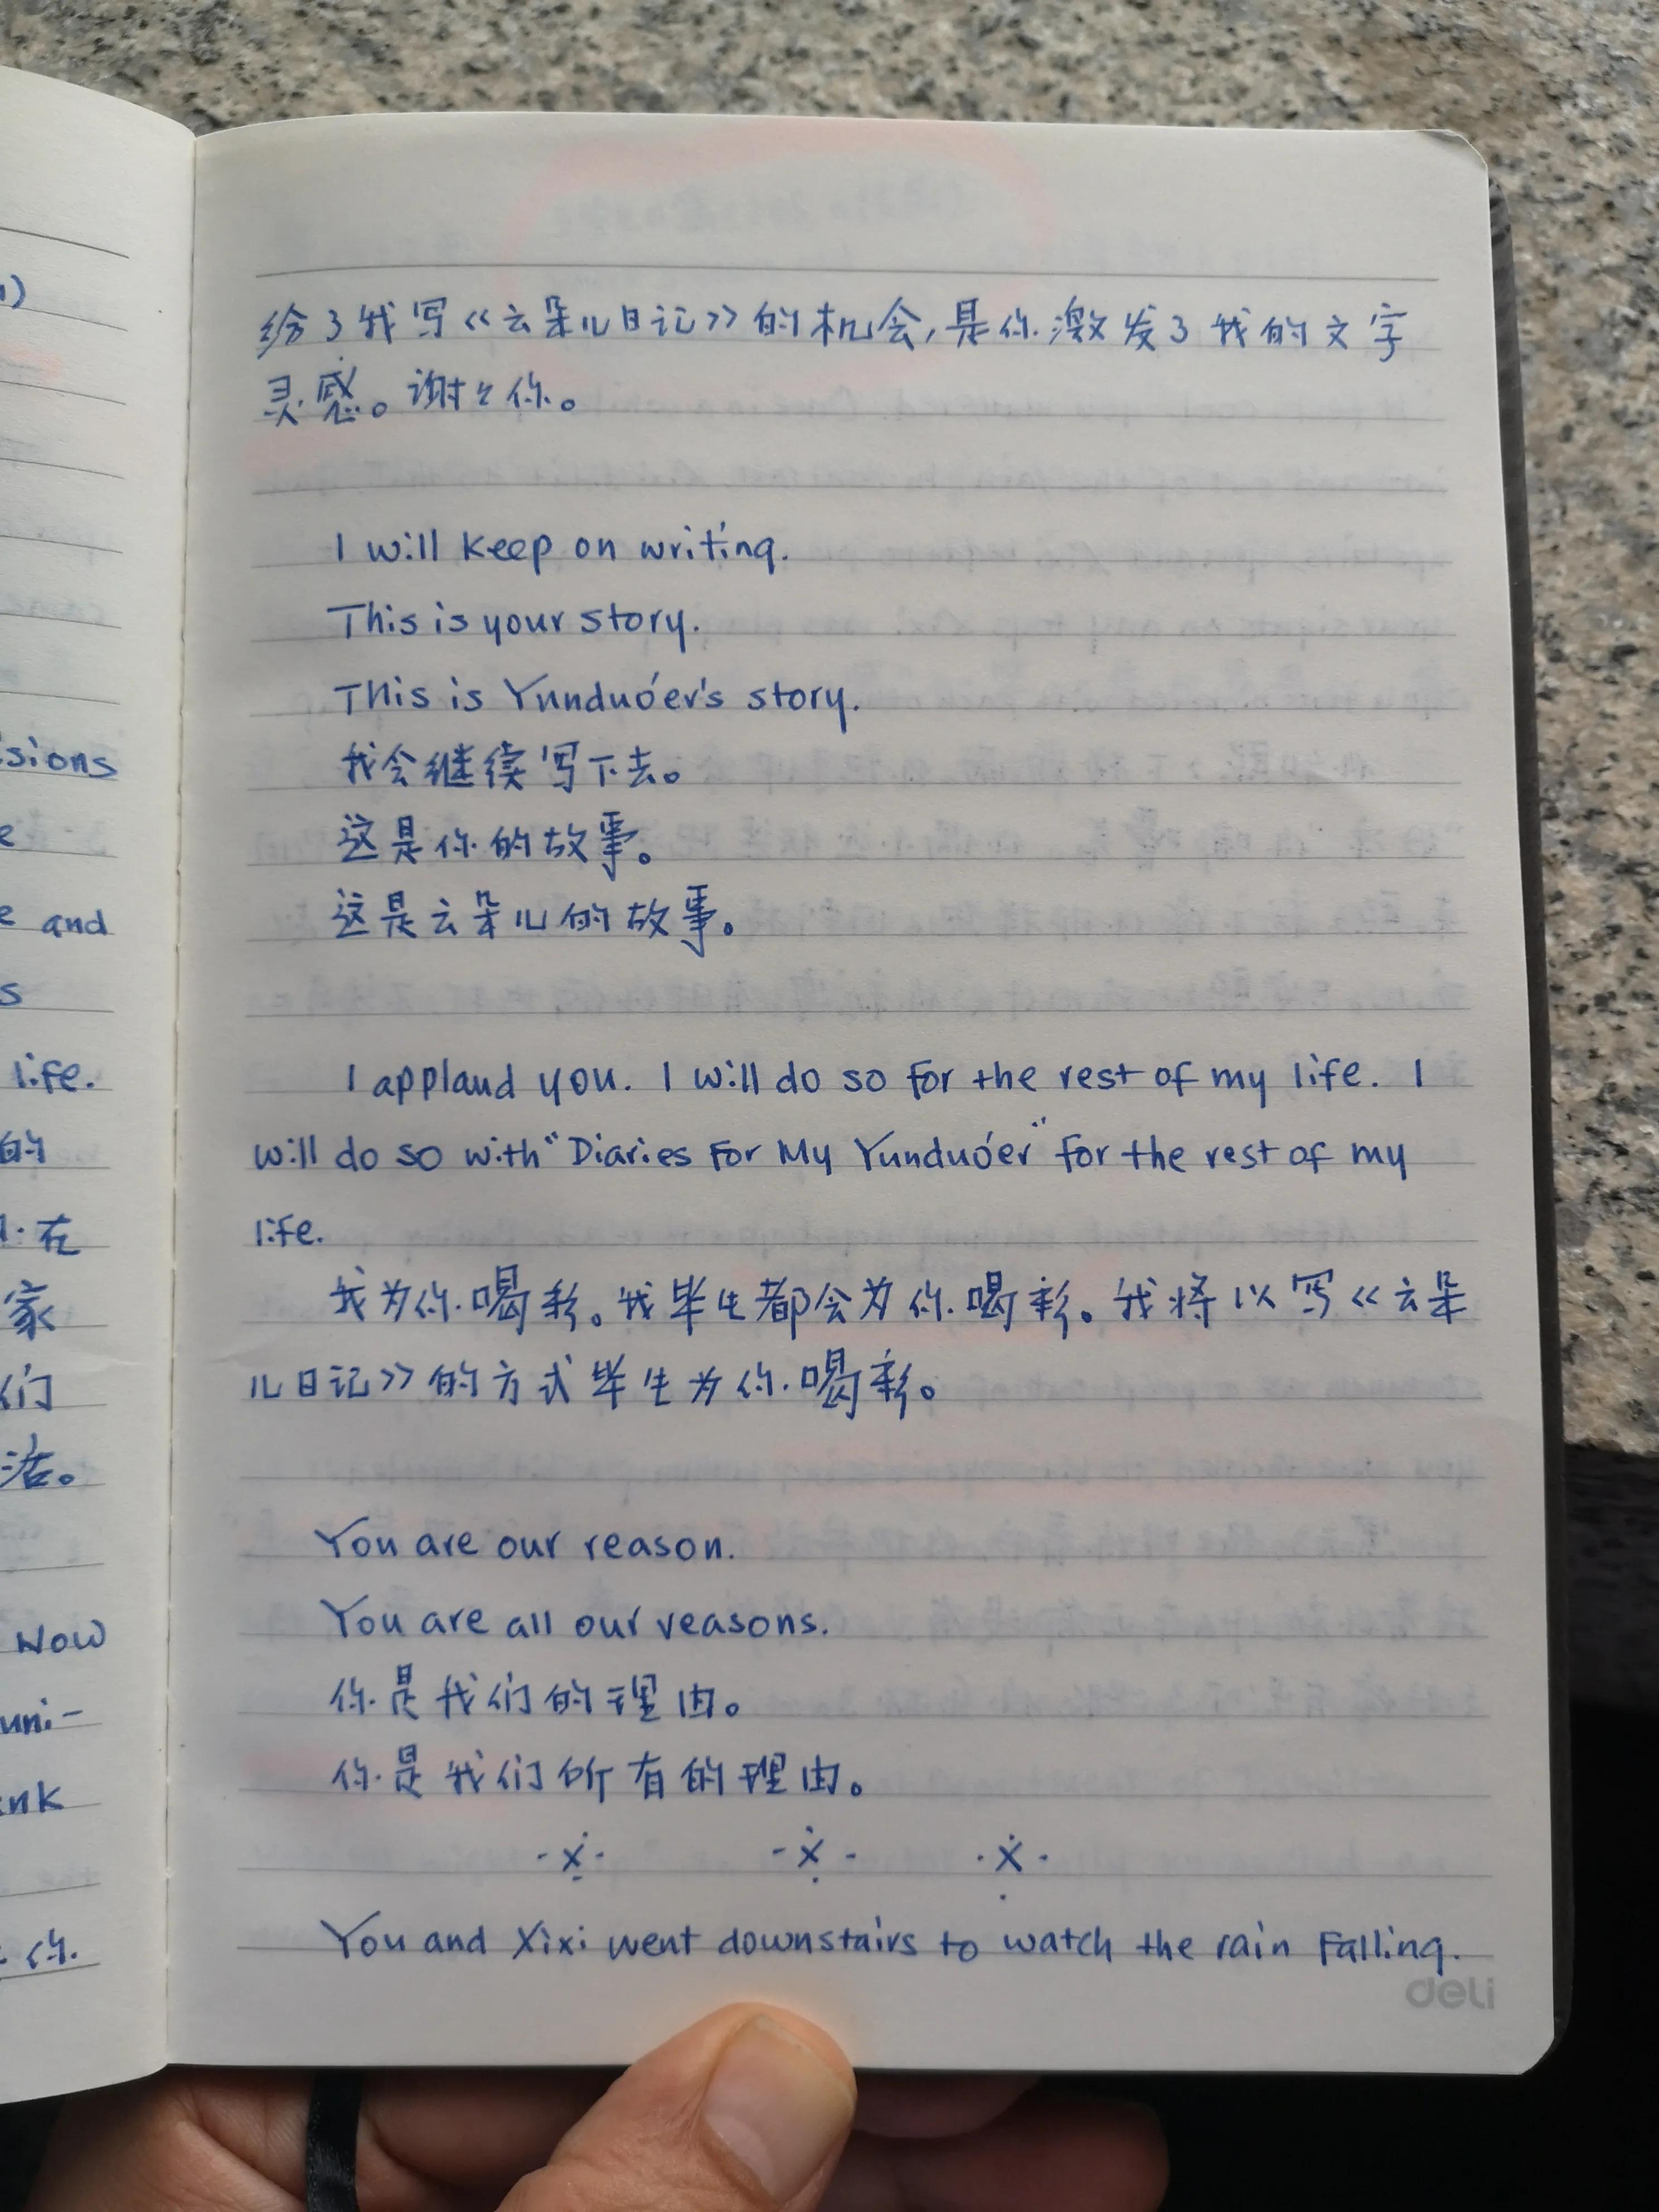 sions
e
e and
s
life.
的
在
家
们
活。
Now
uni-
nk
给了我写《云朵儿日记》的机会,是你激发了我的文字
灵感。谢々你。
I will keep on writing.
This is your story.
This is Yunduǒ'er's story.
我会继续写下去。
这是你的故事。
这是云朵儿的故事。
I applaud you. I will do so for the rest of my life. I
will do so with "Diaries For My Yunduǒ'er" for the rest of my
life.
我为你喝彩。我毕生都会为你喝彩。我将以写《云朵
儿日记》的方式毕生为你喝彩。
You are our reason.
You are all our reasons.
你是我们的理由。
你是我们所有的理由。
You and Xixi went downstairs to watch the rain falling.
deli